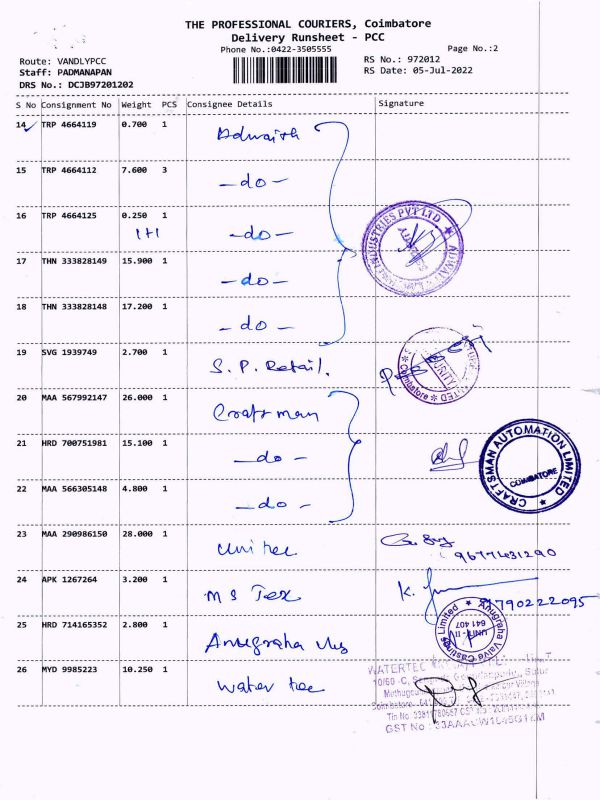 THE PROFESSIONAL COURIERS, Coimbatore
Delivery Runsheet - PCC
Phone No.:0422-3505555
Page No.:2
Route: VANDLYPCC
RS No.: 972012
Staff: PADMANAPAN
RS Date: 05-Jul-2022
DRS No.: DCJB97201202
S No Consignment No Weight PCS Consignee Details Signature
14 TRP 4664119 0.700 1 Adwaith
15 TRP 4664112 7.600 3 -do-
16 TRP 4664125 0.250 1 -do-
1+1
17 THN 333828149 15.900 1 -do-
18 THN 333828148 17.200 1 -do-
19 SVG 1939749 2.700 1 S. P. Retail.
20 MAA 567992147 26.000 1 Craftsman
21 HRD 700751981 15.100 1 -do-
22 MAA 566305148 4.800 1 -do-
CRAFTSMAN AUTOMATION LIMITED
COIMBATORE
23 MAA 290986150 28.000 1 Unitec
9677431290
24 APK 1267264 3.200 1 M S Tex K.
9790222095
25 HRD 714165352 2.800 1 Anugraha
Anugraha Valve Castings Limited
UNIT - II
641 407
26 MYD 9985223 10.250 1 Water tec
WATERTEC
10/60 -C,
GST No